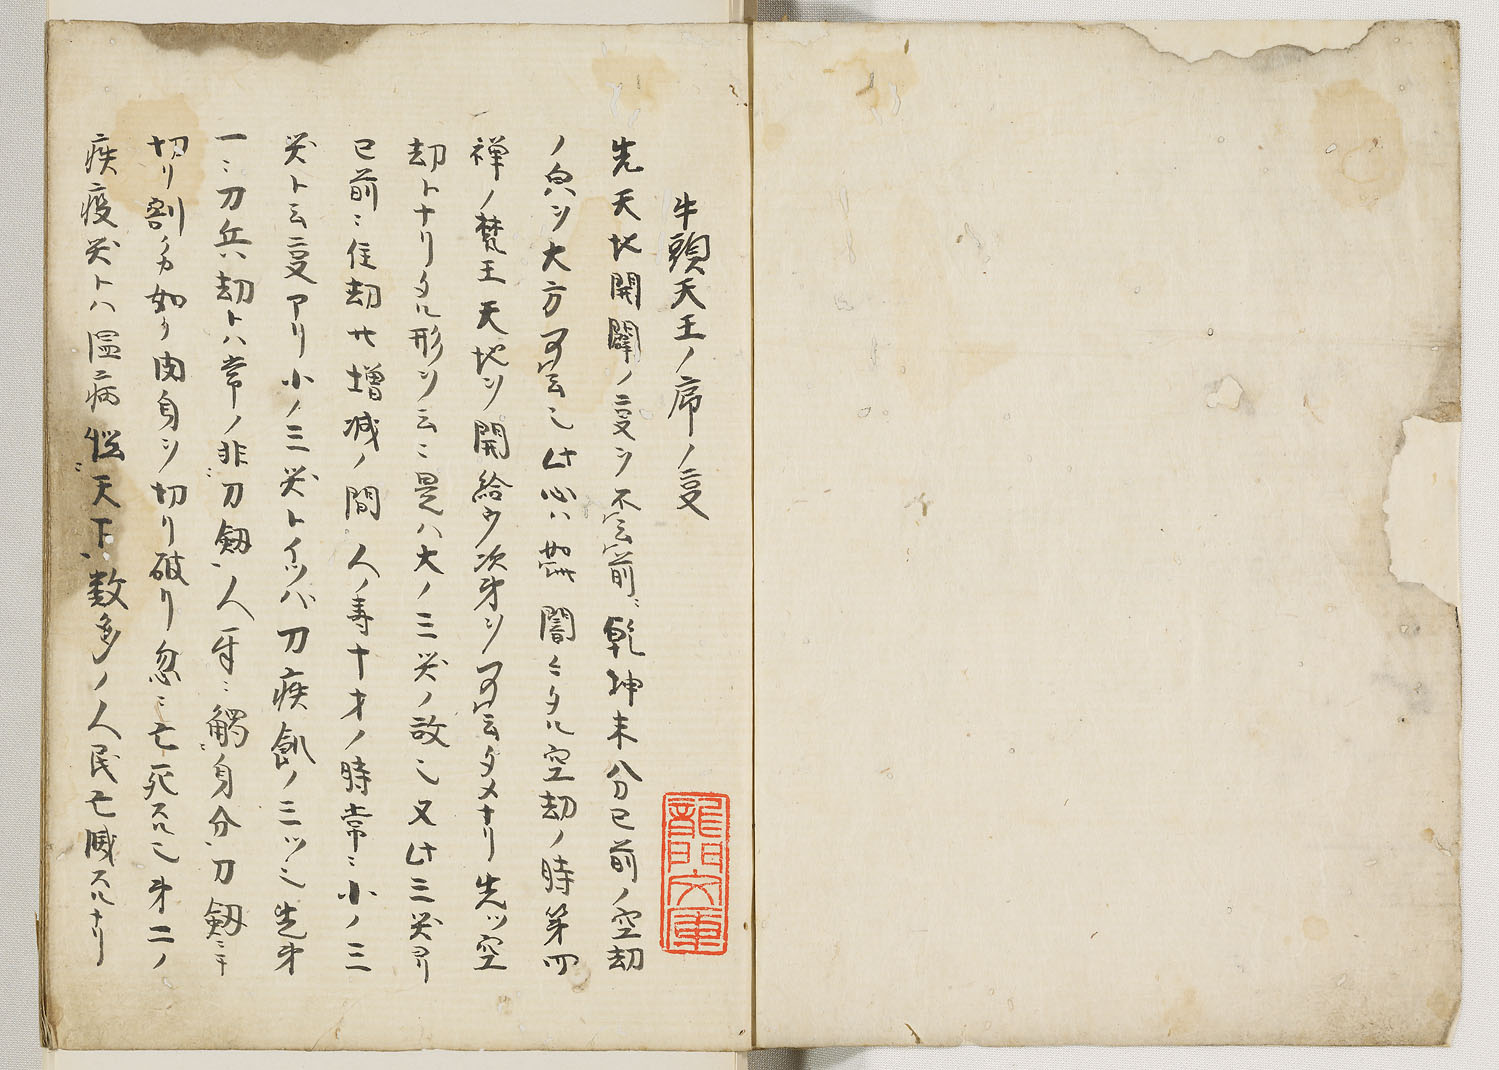 牛頭天王ノ序ノ叓
先天地開闢ノ叓ヲ不云前ニ乾坤未分已前ノ空劫
ノ皃ヲ大方可云也此心ハ 闇々タル空劫ノ時第四
禅ノ梵王天地ヲ開給ウ次才ヲ可云タメナリ先ツ空
劫トナリタル形ヲ云ニ是ハ大ノ三災ノ故也又此三災ヨリ
已前ニ住劫廿増減ノ間人ノ寿十才ノ時常ニ小ノ三
災ト云叓アリ小ノ三災トイツハ刀疾飢ノ三ツ也先才
一ニ刀兵劫トハ常ノ非刀劔ニ人 ニ觸ニ身分刀劔ニテ
切リ割 如ク肉身ヲ切リ破リ忽ニ亡死スル也才二ノ
疾疫災トハ温病 天下ニ数多ノ人民亡滅スルナリ
龍門文庫